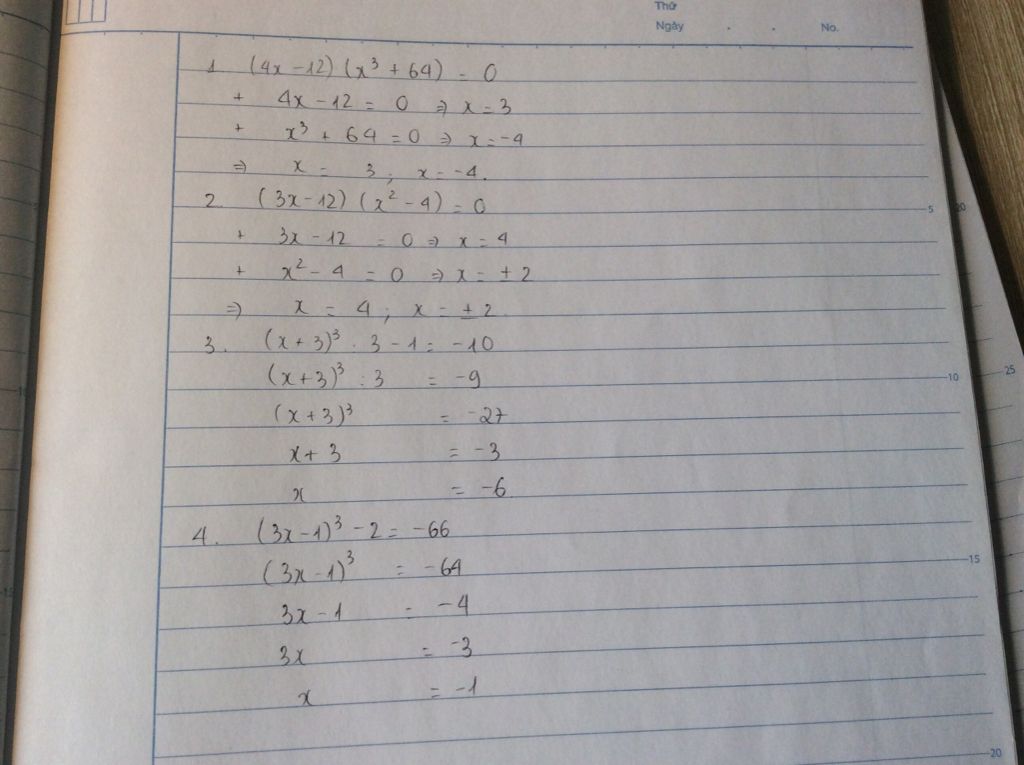 Thứ
Ngày . . No.
1 (4x - 12) (x³ + 64) = 0
+ 4x - 12 = 0 ⇒ x = 3
+ x³ + 64 = 0 ⇒ x = -4
⇒ x = 3 ; x = -4.
2. (3x - 12) (x² - 4) = 0
+ 3x - 12 = 0 ⇒ x = 4
+ x² - 4 = 0 ⇒ x = ± 2
⇒ x = 4 ; x = ± 2
3. (x + 3)³ : 3 - 1 = -10
(x + 3)³ : 3 = -9
(x + 3)³ = -27
x + 3 = -3
x = -6
4. (3x - 1)³ - 2 = -66
(3x - 1)³ = -64
3x - 1 = -4
3x = -3
x = -1
5
10
15
20
20
25